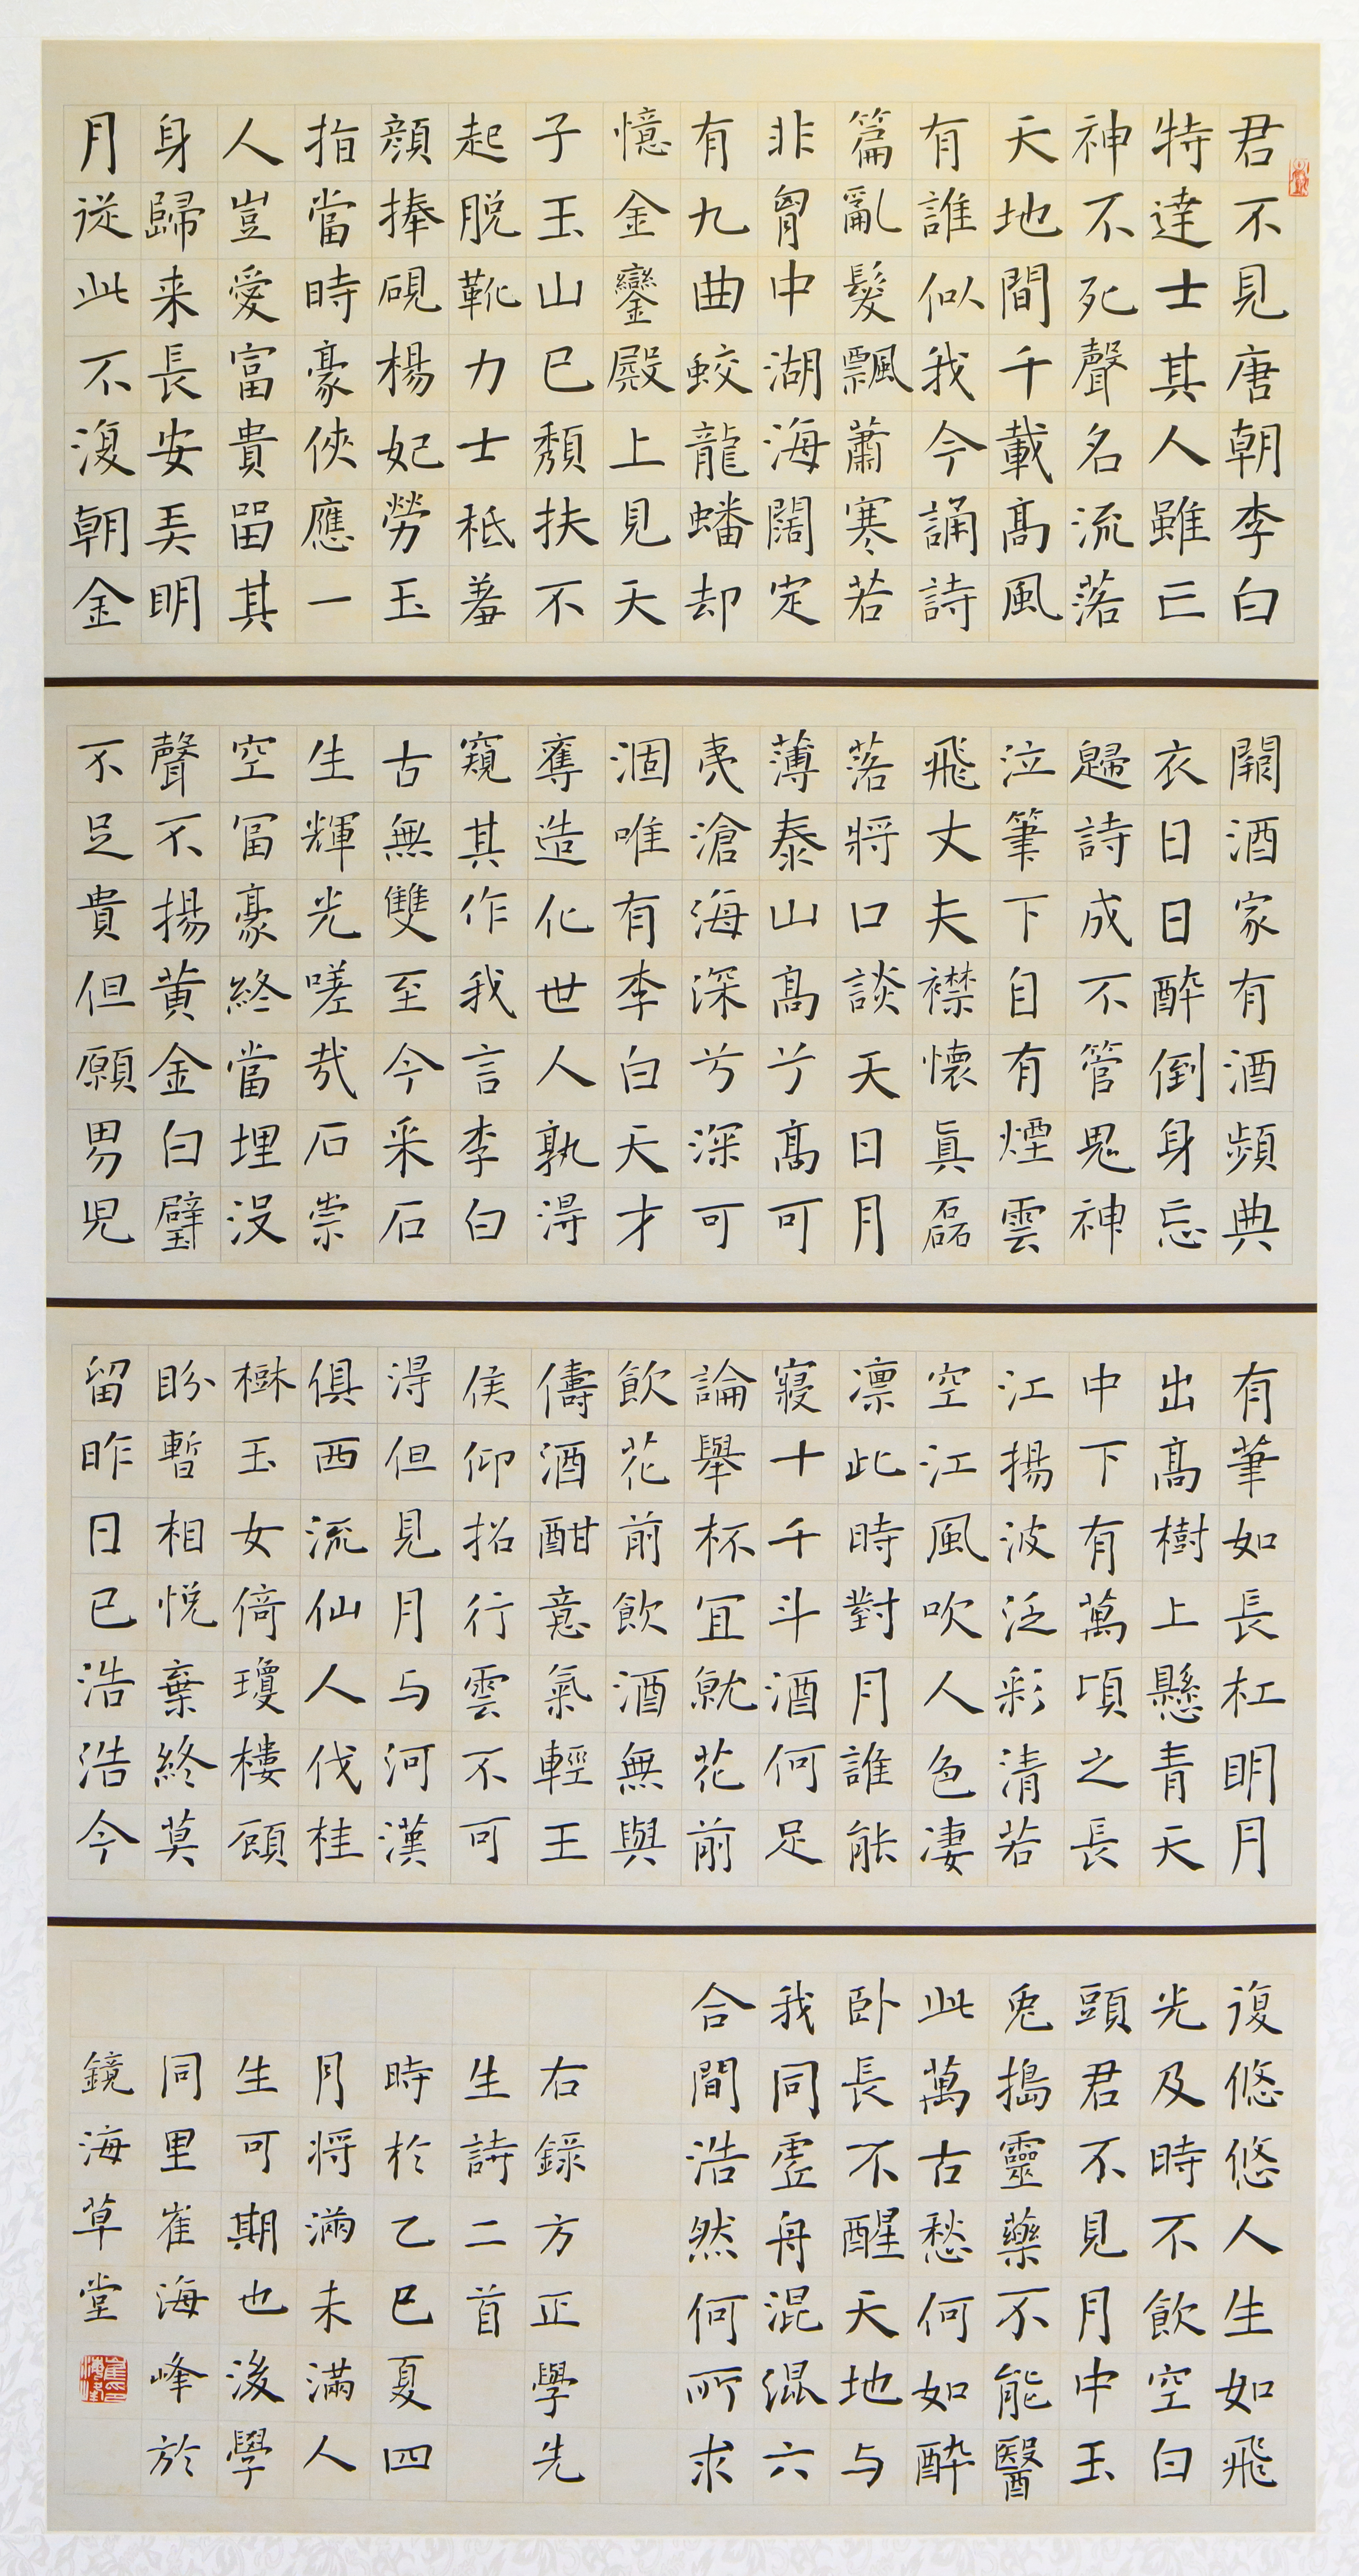 君不見唐朝李白
特達士其人雖亡
神不死聲名流落
天地間千載高風
有誰似我今誦詩
篇亂髮飄蕭寒若
非胷中湖海闊定
有九曲蛟龍蟠却
憶金鑾殿上見天
子玉山已頹扶不
起脫靴力士秪羞
顏捧硯楊妃勞玉
指當時豪俠應一
人豈愛富貴留其
身歸来長安弄明
月從此不復朝金
闕酒家有酒頻典
衣日日醉倒身忘
歸詩成不管鬼神
泣筆下自有煙雲
飛丈夫襟懷眞磊
落將口談天日月
薄泰山高兮高可
夷滄海深兮深可
涸唯有李白天才
奪造化世人孰得
窺其作我言李白
古無雙至今采石
生輝光嗟哉石崇
空冨豪終當埋沒
聲不揚黃金白璧
不足貴但願男兒
有筆如長杠明月
出高樹上懸青天
中下有萬頃之長
江揚波泛彩清若
空江風吹人色凄
凛此時對月誰能
寢十千斗酒何足
論舉杯宜就花前
飲花前飲酒無與
儔酒酣意氣輕王
侯仰招行雲不可
得但見月与河漢
俱西流仙人伐桂
樹玉女倚瓊樓顧
盼暫相悅棄終莫
留昨日已浩浩今
復悠悠人生如飛
光及時不飲空白
頭君不見月中玉
兔搗靈藥不能醫
此萬古愁何如醉
卧長不醒天地与
我同虛舟混混六
合間浩然何所求
右錄方正學先
生詩二首
時於乙巳夏四
月將滿未滿人
生可期也後學
同里崔海峰於
鏡海草堂